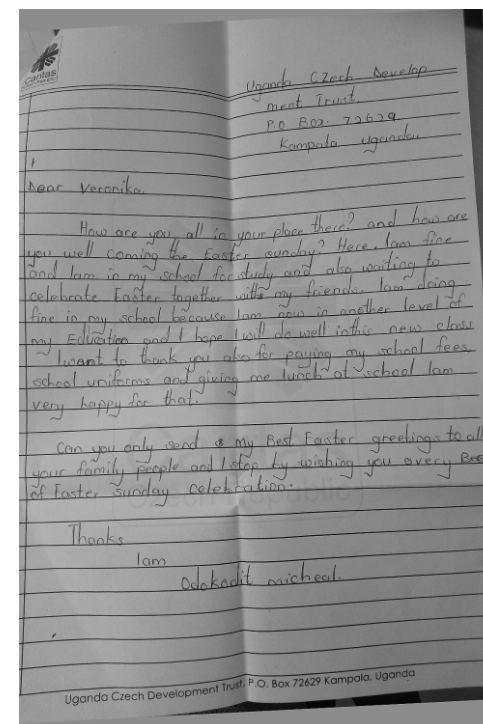 Caritas
Uganda Czech Develop
ment Trust.
P.O Box. 72629
Kampala Uganda
Dear Veronika.
How are you, all in your place there? and how are
you well coming the Easter sunday? Here Iam fine
and Iam in my school for study and also waiting to
celebrate Easter together with my friends. Iam doing
fine in my school because Iam now in another level of
my Education and I hope I will do well in this new class
I want to thank you also for paying my school fees
school uniforms and giving me lunch at school Iam
very happy for that.
Can you only send my Best Easter greetings to all
your family people and I stop by wishing you a very Best
of Easter sunday celebration.
Czech Republic
Thanks
Iam
Odokodit micheal.
Uganda Czech Development Trust, P.O. Box 72629 Kampala, Uganda